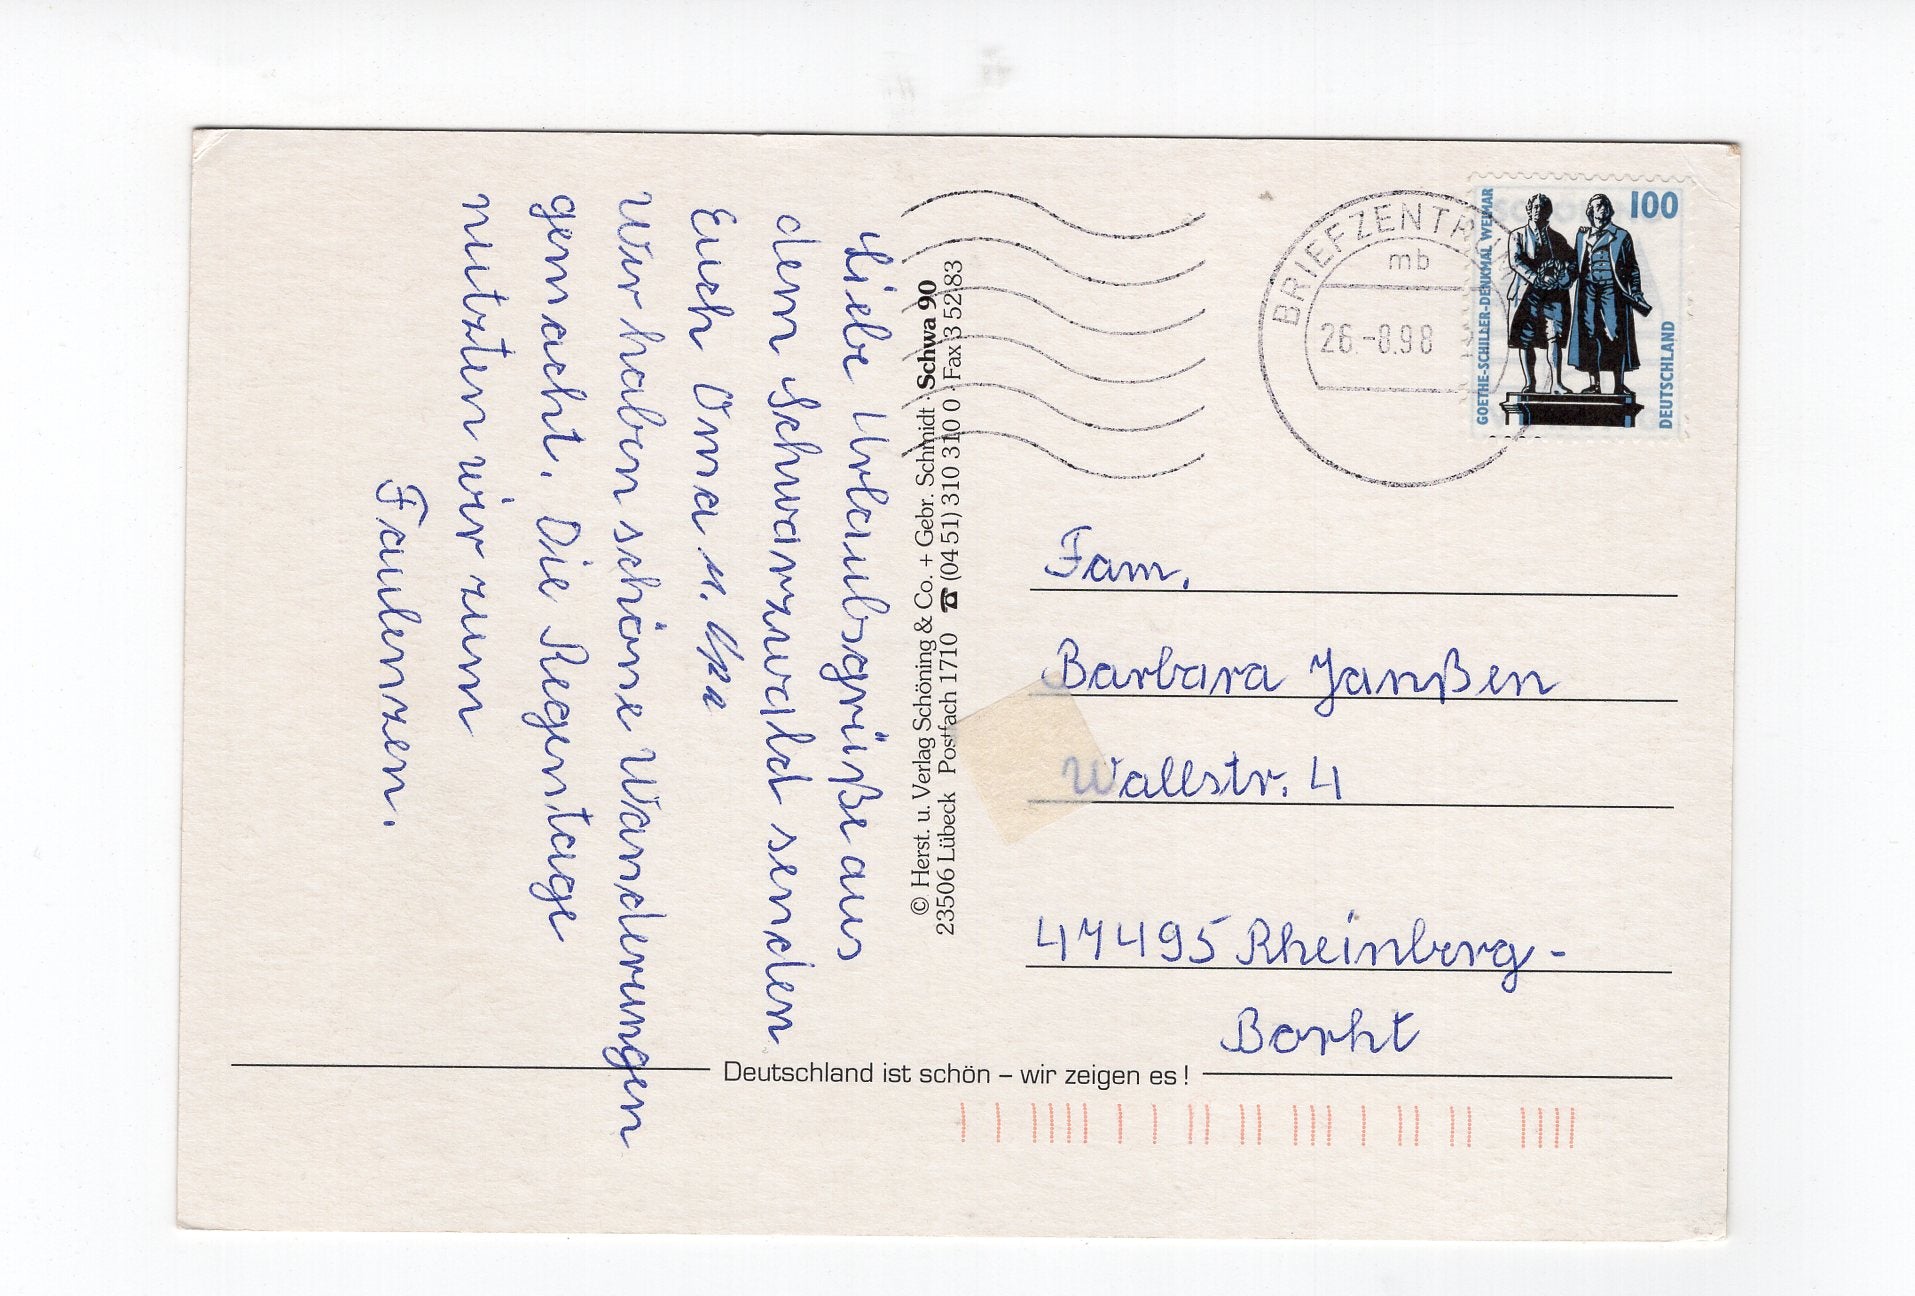 Liebe Urlaubsgrüße aus
dem Schwarzwald senden
Euch Oma u. Opa
Wir haben schöne Wanderungen
gemacht. Die Regentage
nutzten wir zum
Faulenzen.
© Herst. u. Verlag Schöning & Co. + Gebr. Schmidt · Schwa 90
23506 Lübeck Postfach 1710 ☎ (04 51) 310 310 0 Fax 3 52 83
BRIEFZENTR
mb
26.-8.98
GOETHE-SCHILLER-DENKMAL WEIMAR
100
DEUTSCHLAND
Fam.
Barbara Janßen
Wallstr. 4
47495 Rheinberg-
Borht
Deutschland ist schön – wir zeigen es !